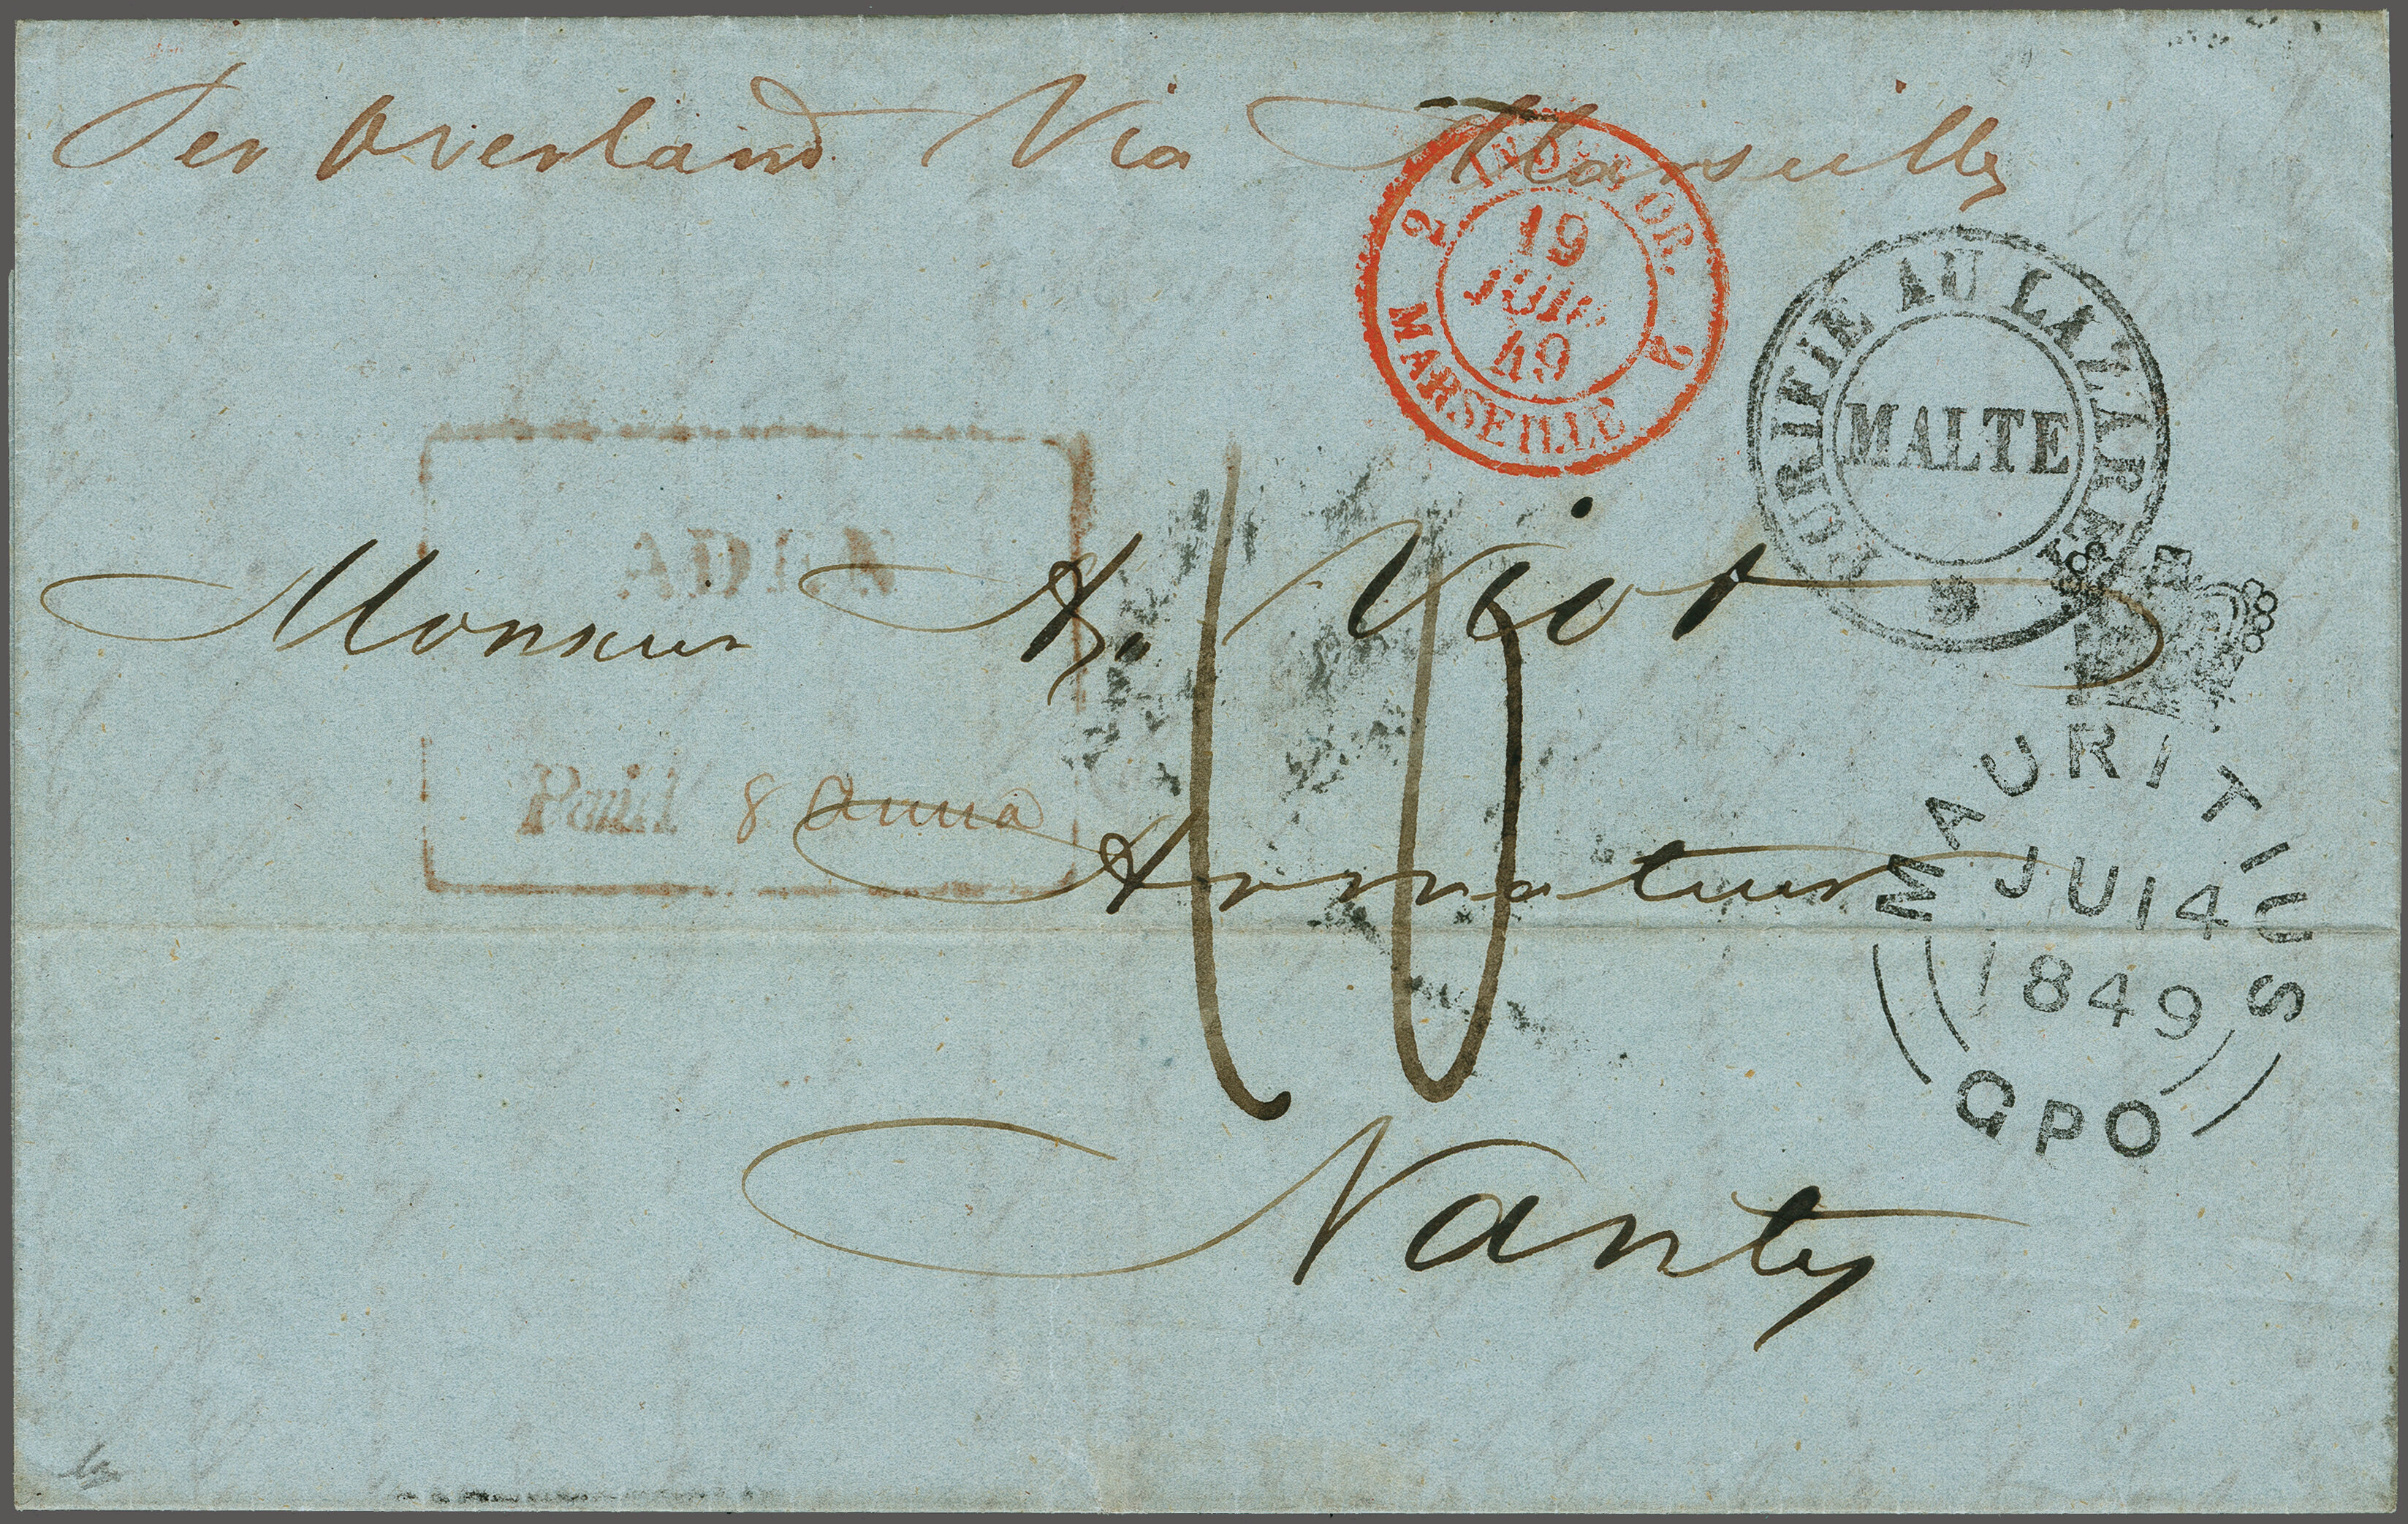 Per Overland Via Marseilles
2 INDES OR. 2
19
JUIN
49
MARSEILLE
PURIFIÉ AU LAZARET
MALTE
ADEN
Monsieur A. Viot
Paid 8 Anna
10
Armateur
MAURITIUS
JU 14
1849
GPO
Nantes